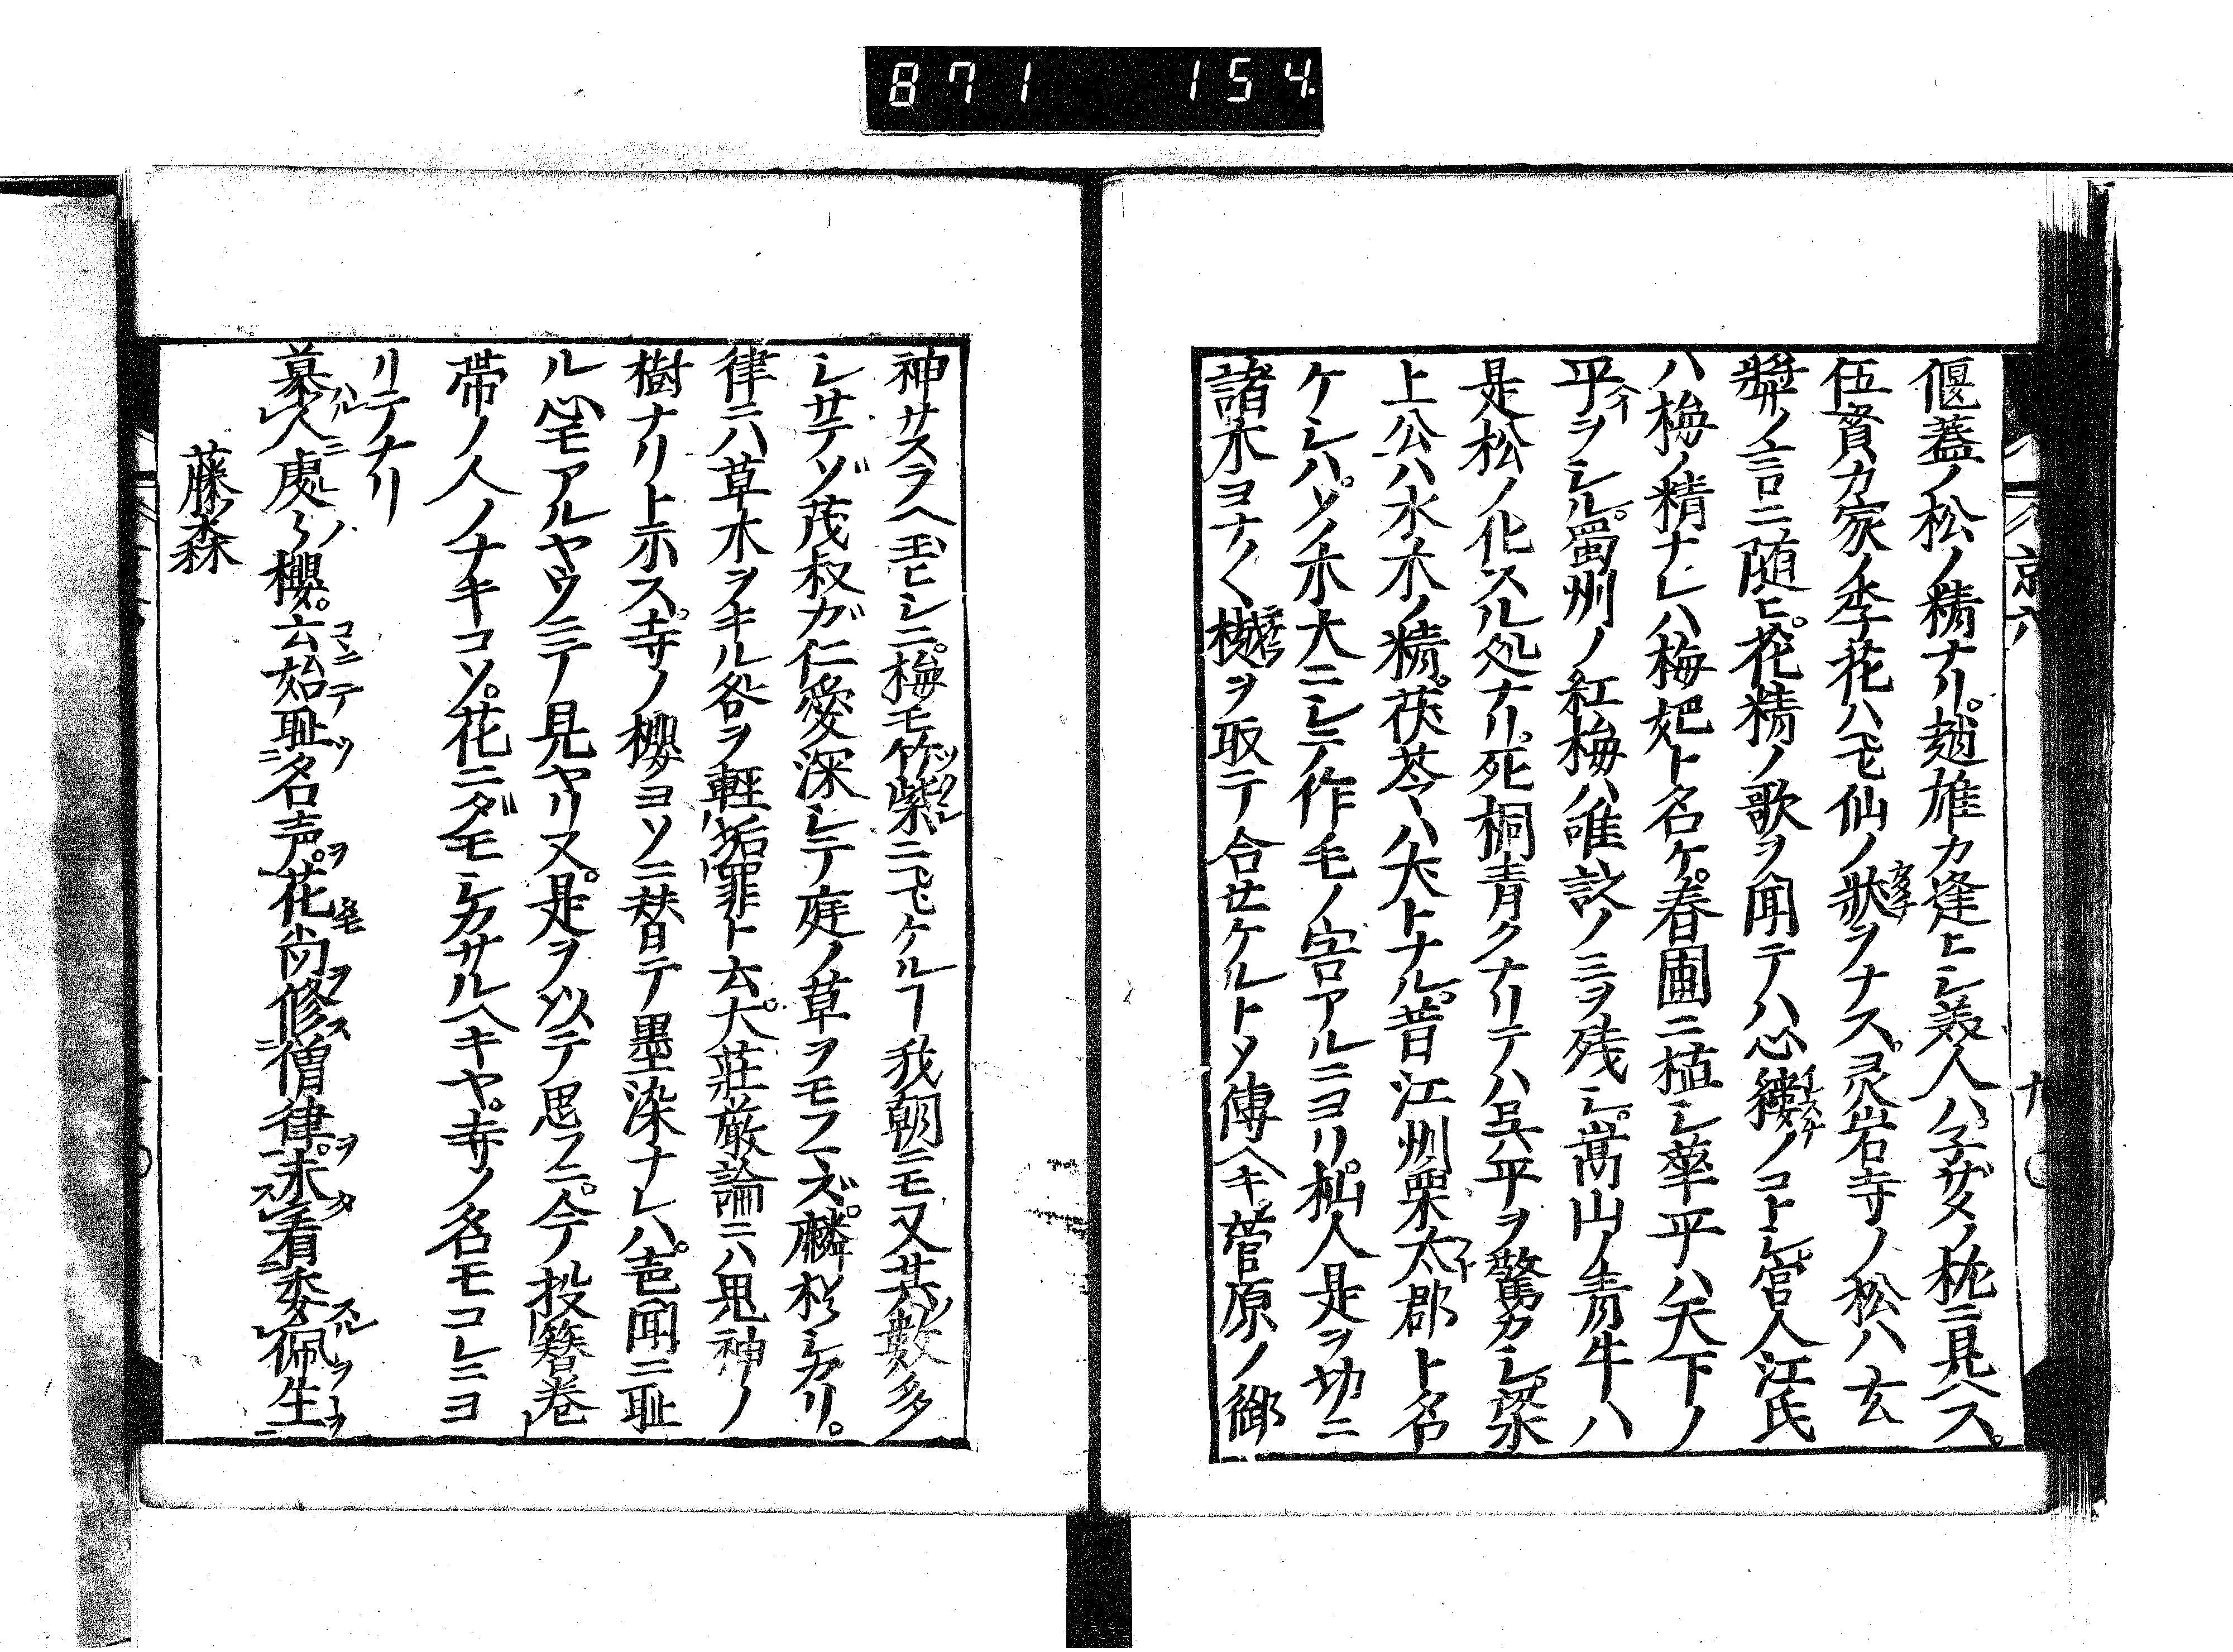 871 154
偃蓋ノ松ノ精ナリ。趙雄カ逢ヒシ美人ハ、子ザメノ枕ニ見ヘス。
伍資カ家ノ季花ハモ仙ノ状ヲナス。灵岩寺ノ松ハ玄
奘ノ言ニ随ヒ。花精ノ歌ヲ聞テハ心ノコトシ。官人江氏
ハ梅ノ精ナレハ梅妃ト名ケ。春圃ニ植シ華平ハ天下ノ
平ヲシル。蜀州ノ紅梅ハ唯詠ノミヲ残シ。嵩山ノ青牛ハ
是松ノ化スル処ナリ。死桐青クナリテハ呉平ヲ驚カシ。梁
上公ハ水木ノ精。茯苓ハ犬トナル。昔江州栗太郡ト名
ケシハ。ソノ木大ニシテ作毛ノ害アルニヨリ。杣人是ヲ切ニ
諸木ヨナ〱ヲ取テ合セケルトソ傳ヘキ。菅原ノ御
神サスラヘ玉ヒシニ。梅モ筑紫ニモケルヿ我朝ニモ又其數多
シサテゾ茂叔ガ仁愛深シテ庭ノ草ヲモフマズ。麟モシカリ。
律ニハ草木ヲキル咎ヲ軽垢罪ト云。大荘厳論ニハ鬼神ノ
樹ナリト示ス。寺ノ櫻ヨソニ替テ墨染ナレハ。色聞ニ耻
ル心モアルヤウニテ見ヤリ又。是ヲ以テ思フニ。今投簪巻
帯ノ人ノナキコソ。花ニダモシカサルヘキヤ。寺ノ名モコレニヨ
リテナリ
慕人處々櫻。云始耻名声。花尚修僧律。未看委佩生
藤森